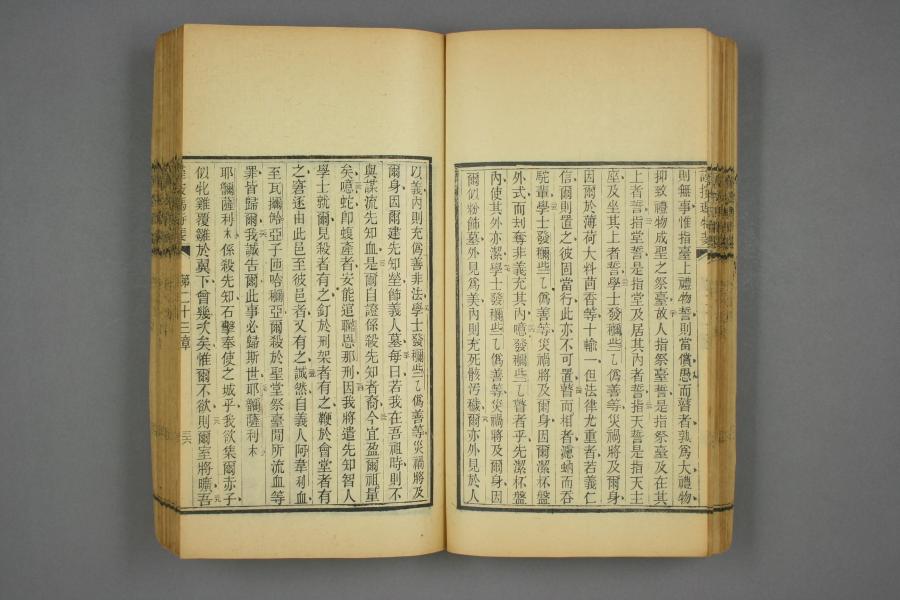 則無事惟指臺上禮物誓則當償愚而瞽者孰爲大禮物
抑致禮物成聖之祭臺故人指祭臺誓是指祭臺及在其
上者誓指堂誓是指堂及居其內者誓指天誓是指天主
座及坐其上者誓學士發穪些乙爲善等災禍將及爾身
因爾於薄荷大料茴香等十輸一但法律尤重者若義仁
信爾則置之彼固當行此亦不可置瞽而相者濾蜹而吞
駝輩學士發穪些乙爲善等災禍將及爾身因爾潔杯盤
外式而刦奪非義充其內噫發穪些乙瞽者乎先潔杯盤
內使其外亦潔學士發穪些乙爲善等災禍將及爾身因
爾似粉飾墓外見爲美內則充死骸汚穢爾亦外見於人
以義內則充爲善非法學士發穪些乙爲善等災禍將及
爾身因爾建先知塋飾義人墓每曰若我在吾祖時則不
與謀流先知血是爾自證係殺先知者裔今宜盈爾祖量
矣噫蛇卽蝮產者安能逭聽恩那刑因我將遣先知智人
學士就爾見殺者有之釘於刑架者有之鞭於會堂者有
之窘逐由此邑至彼邑者又有之誠然自義人阿韋利血
至瓦攝皓亞子匝哈穪亞爾殺於聖堂祭臺間所流血等
罪皆歸爾我誠吿爾此事必歸斯世耶髗薩利木
耶髗薩利木係殺先知石擊奉使之城乎我欲集爾赤子
似牝雞覆雛於翼下曾幾次矣惟爾不欲則爾室將曠吾
第二十三章